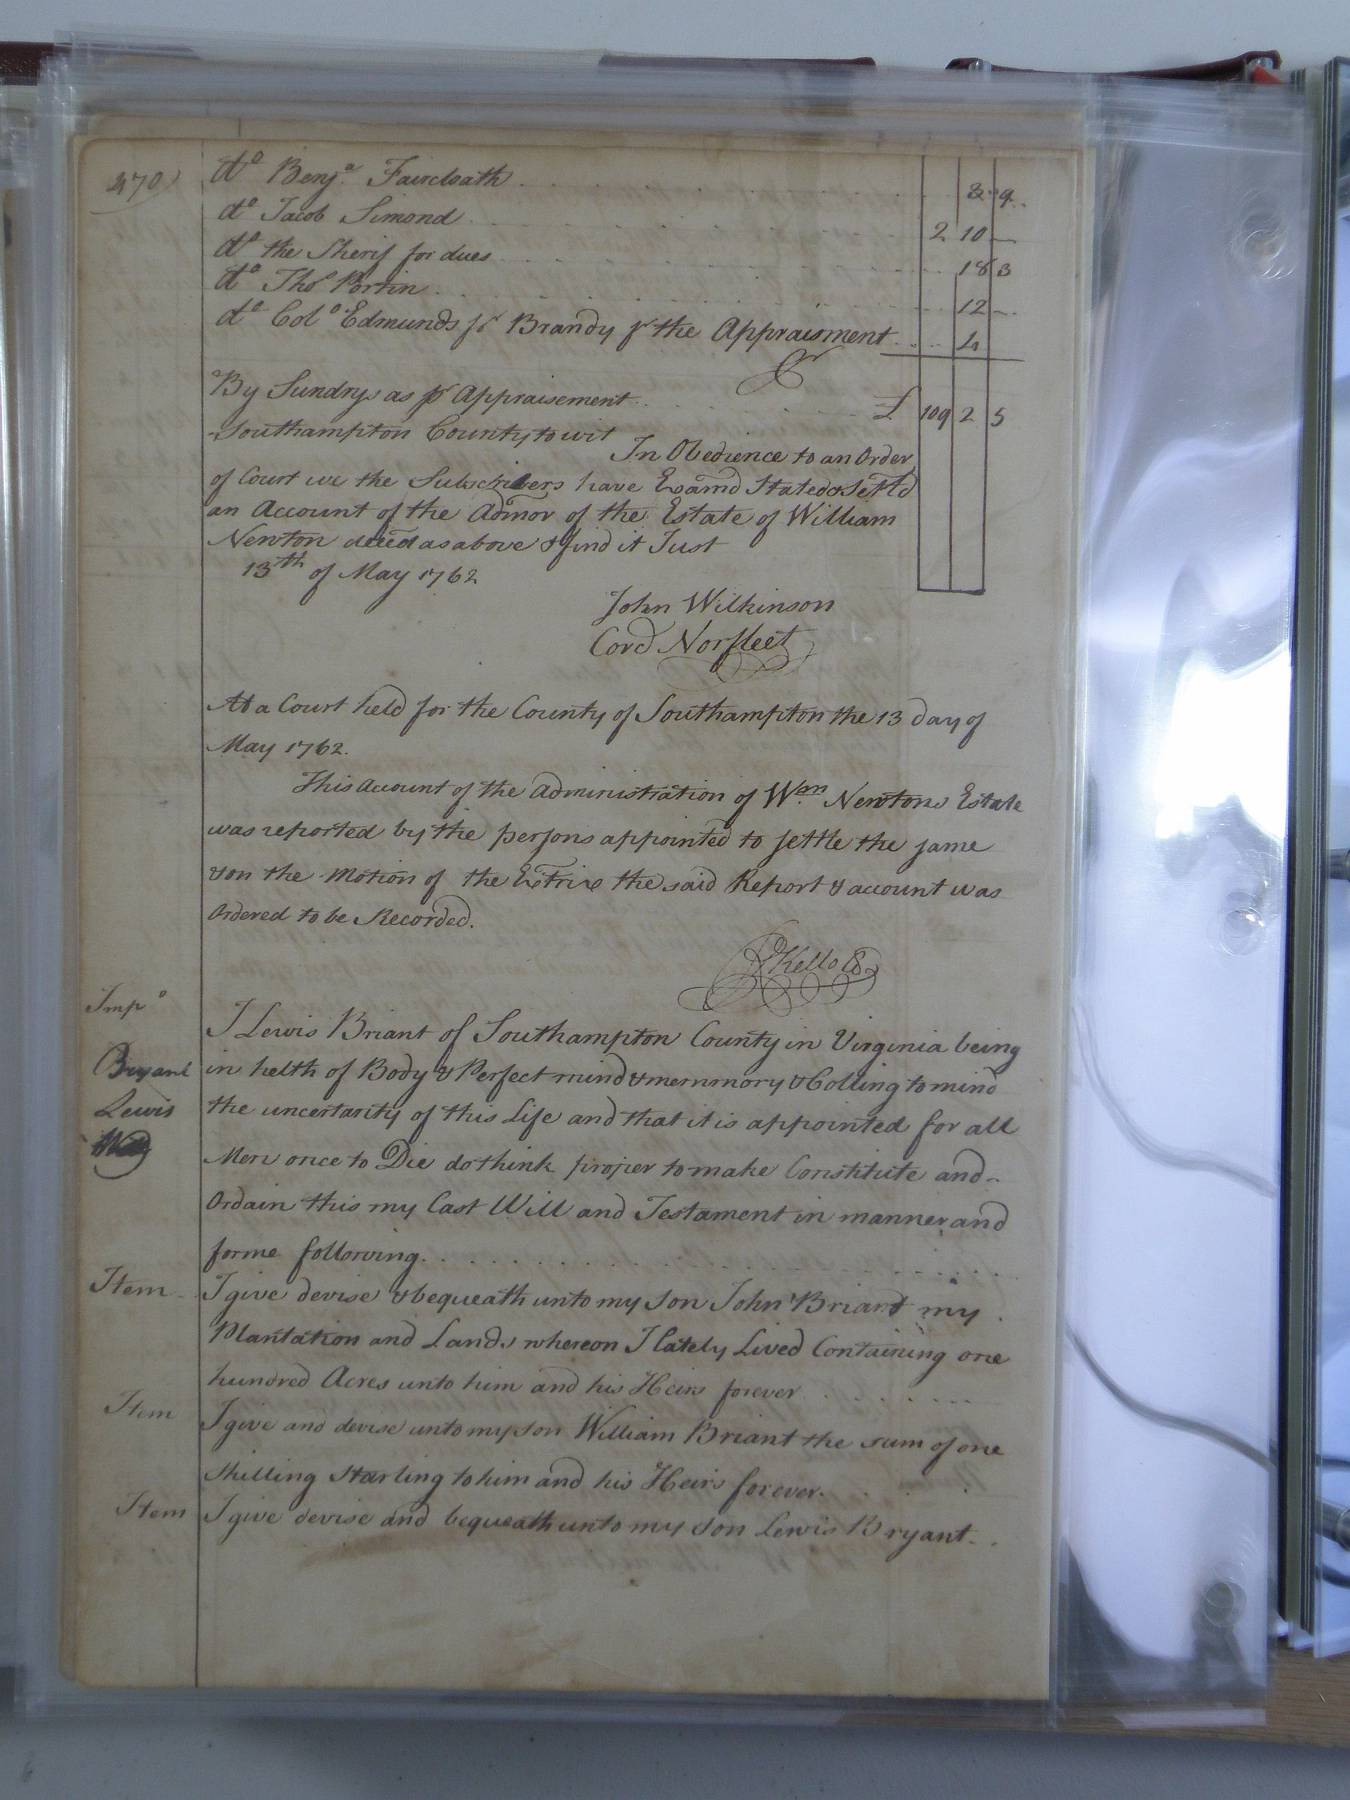 470)
do Benja. Faircloath . . . 8 9
do Jacob Simond . . . 2 10 —
do the Sherif for dues . . . 18 3
do Thos Portin . . . 12 —
do Colo Edmunds pr Brandy pr the Appraisment . . . 4
Cr
By Sundrys as pr Appraisement . . . £ 109 2 5
Southampton County to wit
In Obedience to an Order
of Court we the Subscribers have Examd Stated & Settld
an Account of the Admor of the Estate of William
Newton deced as above & find it Just
13th of May 1762
John Wilkinson
Cord Norfleet
At a Court held for the County of Southampton the 13 day of
May 1762.
This Account of the Administration of Wm Newtons Estate
was reported by the persons appointed to settle the same
& on the Motion of the Extrix the said Report & account was
Ordered to be Recorded.
R Kello CC
Impo
I Lewis Briant of Southampton County in Virginia being
Bryant
in helth of Body & Perfect mind & memmory & Colling to mind
Lewis
the uncertanity of this Life and that it is appointed for all
Men once to Die do think proper to make Constitute and
Ordain this my Last Will and Testament in manner and
forme following . . .
Item I give devise & bequeath unto my son John Briant my
Plantation and Lands whereon I lately Lived Containing one
hundred Acres unto him and his Heirs forever . . .
Item I give and devise unto my son William Briant the sum of one
shilling Starling to him and his Heirs forever.
Item I give devise and bequeath unto my son Lewis Bryant